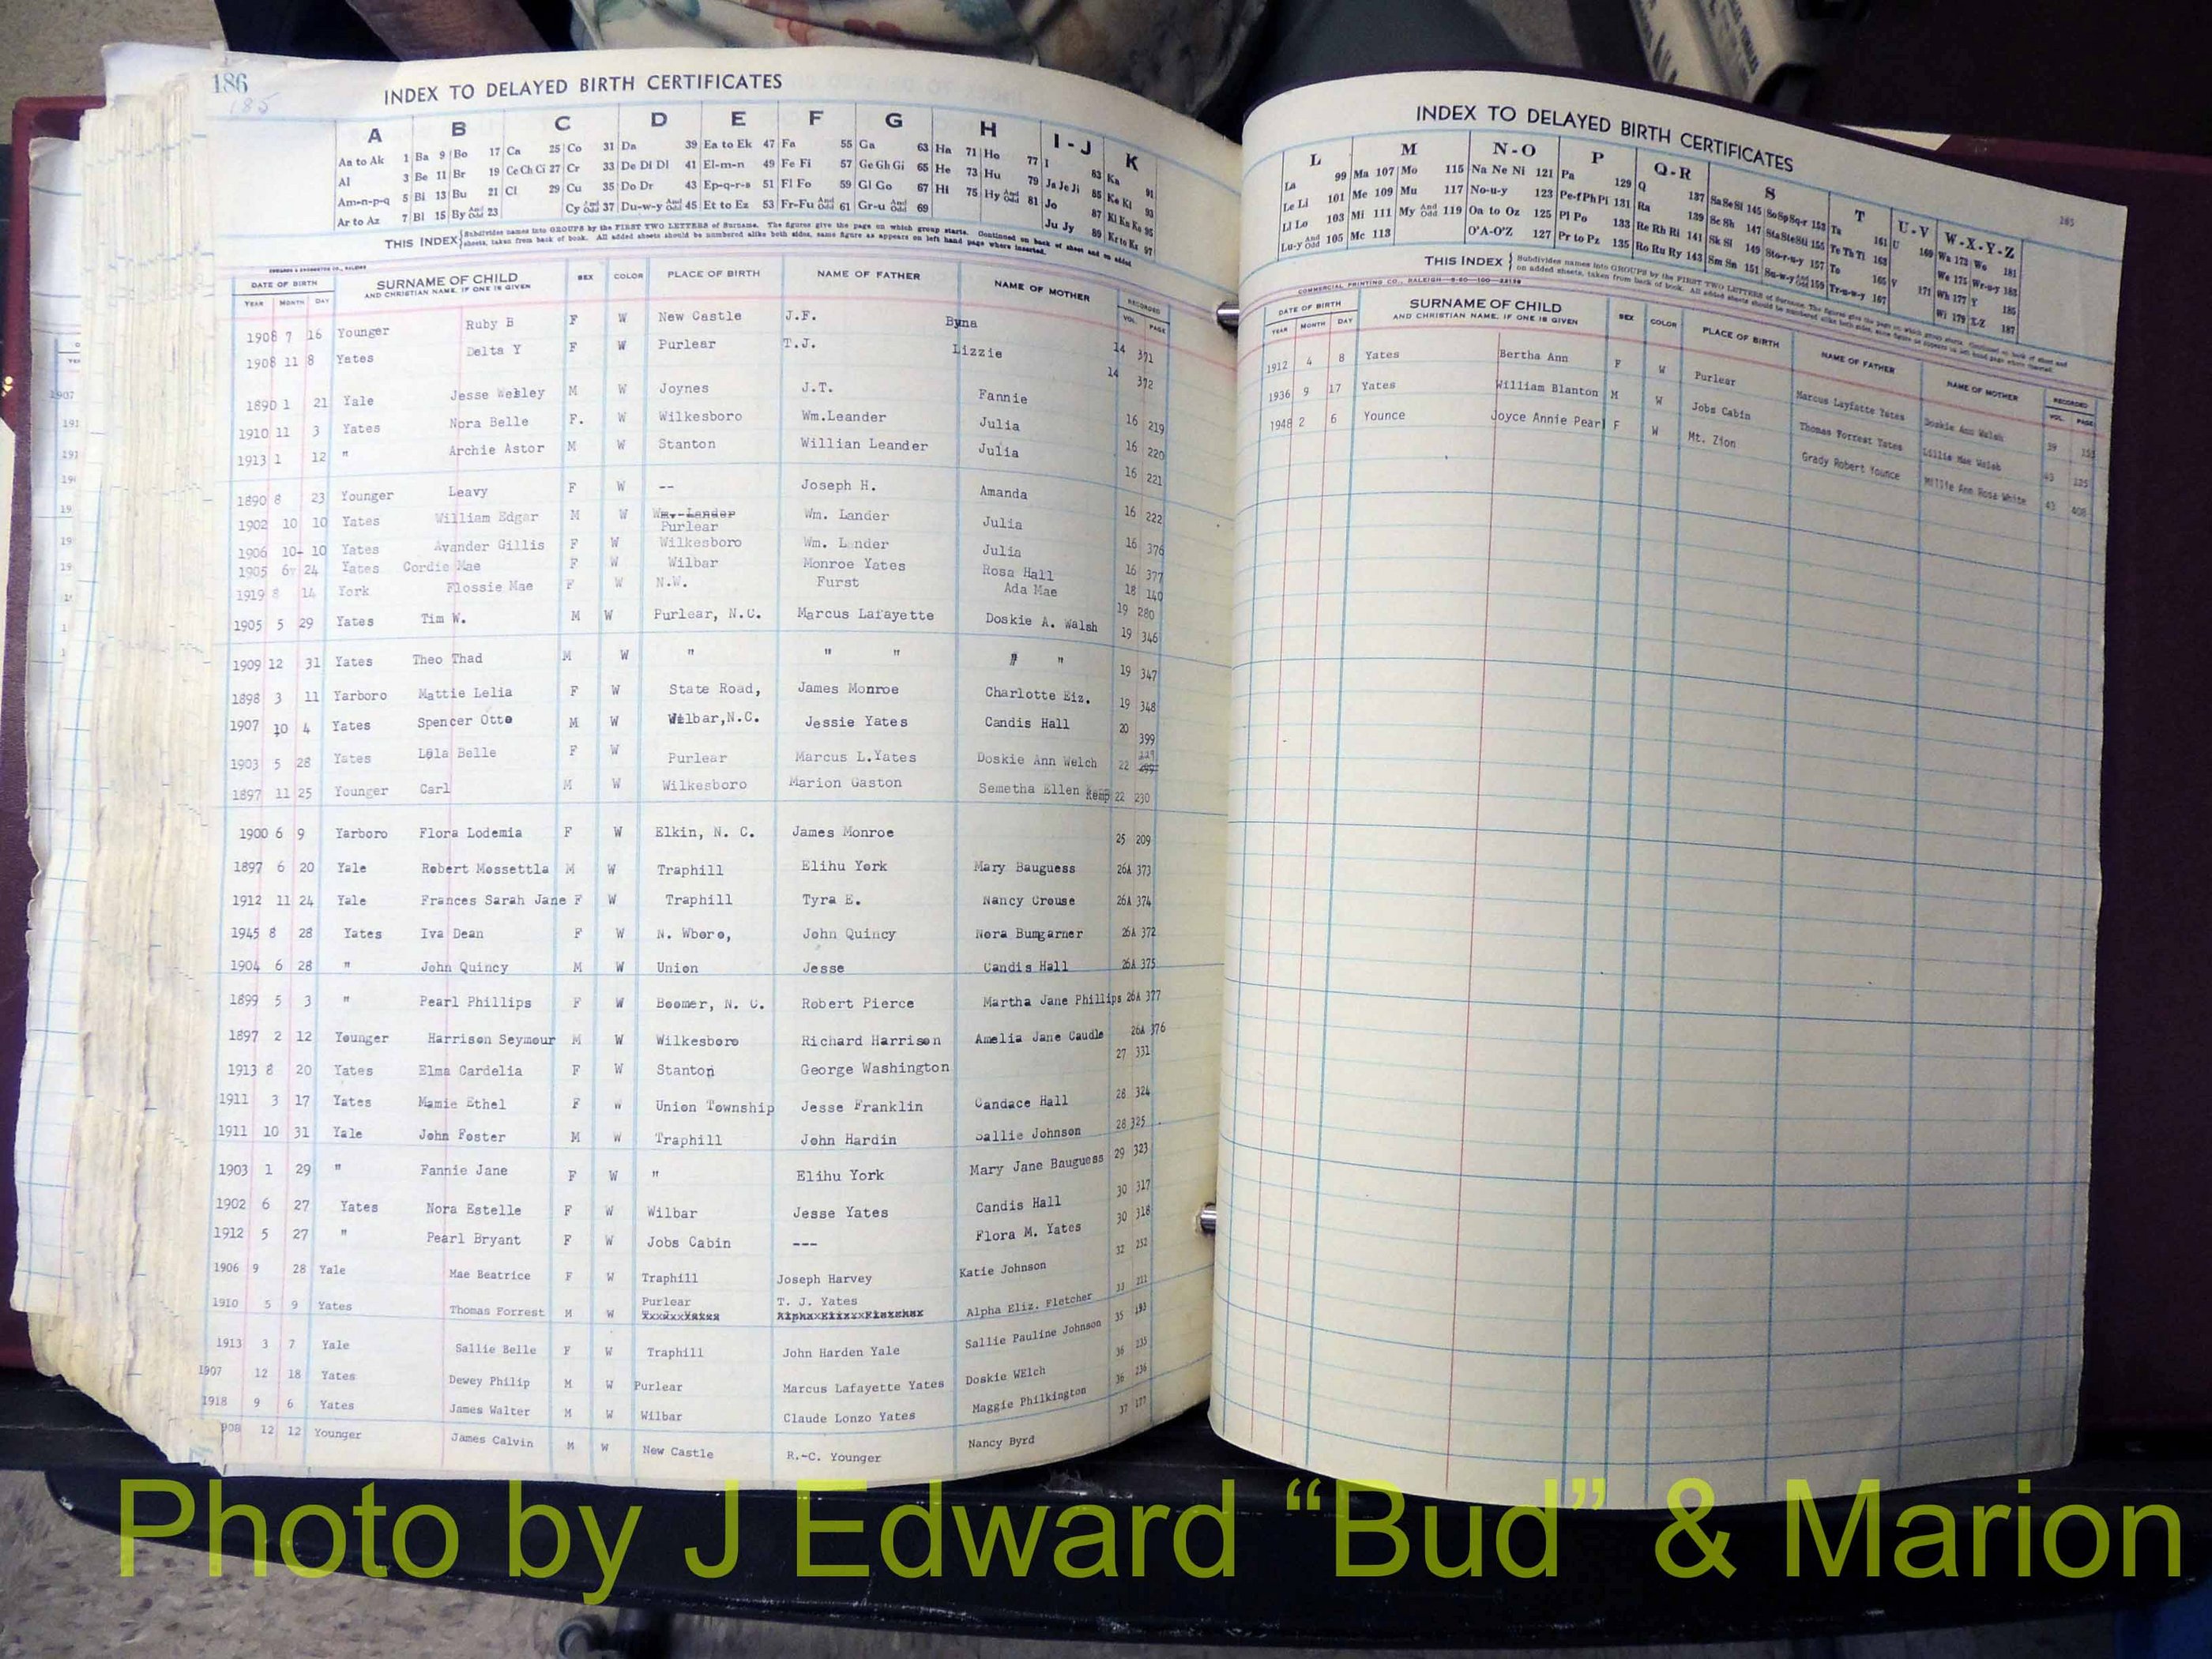 186
185
INDEX TO DELAYED BIRTH CERTIFICATES
A B C D E F G H I-J K
Aa to Ak 1 Ba 9 Bo 17 Ca 25 Co 31 Da 39 Ea to Ek 47 Fa 55 Ga 63 Ha 71 Ho 77 I 83 Ka 91
Al 3 Be 11 Br 19 Ce Ch Ci 27 Cr 33 De Di Dl 41 El-m-n 49 Fe Fi 57 Ge Gh Gi 65 He 73 Hu 79 Ja Je Ji 85 Ke Ki 93
Am-n-p-q 5 Bi 13 Bu 21 Cl 29 Cu 35 Do Dr 43 Ep-q-r-s 51 Fl Fo 59 Gl Go 67 Hi 75 Hy And Odd 81 Jo 87 Kl Kn Ko 95
Ar to Az 7 Bl 15 By And Odd 23 Cy And Odd 37 Du-w-y And Odd 45 Et to Ez 53 Fr-Fu And Odd 61 Gr-u And Odd 69 Ju Jy 89 Kr to Kz 97
THIS INDEX Subdivides names into GROUPS by the FIRST TWO LETTERS of Surname. The figures give the page on which group starts. Continued on back of sheet and on added
sheets, taken from back of book. All added sheets should be numbered alike both sides, same figure as appears on left hand page where inserted.
DATE OF BIRTH SURNAME OF CHILD SEX COLOR PLACE OF BIRTH NAME OF FATHER NAME OF MOTHER RECORDED
YEAR MONTH DAY AND CHRISTIAN NAME, IF ONE IS GIVEN VOL. PAGE
1908 7 16 Younger Ruby B F W New Castle J.F. Byna 14 371
1908 11 8 Yates Delta Y F W Purlear T.J. Lizzie 14 372
1890 1 21 Yale Jesse Wesley M W Joynes J.T. Fannie 16 219
1910 11 3 Yates Nora Belle F. W Wilkesboro Wm.Leander Julia 16 220
1913 1 12 " Archie Astor M W Stanton Willian Leander Julia 16 221
1890 8 23 Younger Leavy F W -- Joseph H. Amanda 16 222
1902 10 10 Yates William Edgar M W Wm. Lander Purlear Wm. Lander Julia 16 376
1906 10- 10 Yates Avander Gillis F W Wilkesboro Wm. L nder Julia 16 377
1905 6 24 Yates Cordie Mae F W Wilbar Monroe Yates Rosa Hall 18 140
1919 8 14 York Flossie Mae F W N.W. Furst Ada Mae 19 280
1905 5 29 Yates Tim W. M W Purlear, N.C. Marcus Lafayette Doskie A. Walsh 19 346
1909 12 31 Yates Theo Thad M W " " " " " 19 347
1898 3 11 Yarboro Mattie Lelia F W State Road, James Monroe Charlotte Eiz. 19 348
1907 10 4 Yates Spencer Otto M W Wilbar,N.C. Jessie Yates Candis Hall 20 399
1903 5 28 Yates Lela Belle F W Purlear Marcus L.Yates Doskie Ann Welch 22
1897 11 25 Younger Carl M W Wilkesboro Marion Gaston Semetha Ellen Kemp 22 230
1900 6 9 Yarboro Flora Lodemia F W Elkin, N. C. James Monroe 25 209
1897 6 20 Yale Robert Mossettla M W Traphill Elihu York Mary Bauguess 26A 373
1912 11 24 Yale Frances Sarah Jane F W Traphill Tyra E. Nancy Crouse 26A 374
1945 8 28 Yates Iva Dean F W N. Wboro, John Quincy Nora Bumgarner 26A 372
1904 6 28 " John Quincy M W Union Jesse Candis Hall 26A 375
1899 5 3 " Pearl Phillips F W Boomer, N. C. Robert Pierce Martha Jane Phillips 26A 377
1897 2 12 Younger Harrison Seymour M W Wilkesboro Richard Harrison Amelia Jane Caudle 26A 376
1913 8 20 Yates Elma Cardelia F W Stanton George Washington 27 331
1911 3 17 Yates Mamie Ethel F W Union Township Jesse Franklin Candace Hall 28 324
1911 10 31 Yale John Foster M W Traphill John Hardin Sallie Johnson 28 325
1903 1 29 " Fannie Jane F W " Elihu York Mary Jane Bauguess 29 323
1902 6 27 Yates Nora Estelle F W Wilbar Jesse Yates Candis Hall 30 317
1912 5 27 " Pearl Bryant F W Jobs Cabin --- Flora M. Yates 30 318
1906 9 28 Yale Mae Beatrice F W Traphill Joseph Harvey Katie Johnson 32 252
1910 5 9 Yates Thomas Forrest M W Purlear T. J. Yates Alpha Eliz. Fletcher 33 211
1913 3 7 Yale Sallie Belle F W Traphill John Harden Yale Sallie Pauline Johnson 35 193
1907 12 18 Yates Dewey Philip M W Purlear Marcus Lafayette Yates Doskie WElch 36 235
1918 9 6 Yates James Walter M W Wilbar Claude Lonzo Yates Maggie Philkington 36 236
908 12 12 Younger James Calvin M W New Castle R.-C. Younger Nancy Byrd 37 177
INDEX TO DELAYED BIRTH CERTIFICATES
185
L M N-O P Q-R S T U-V W-X-Y-Z
La 99 Ma 107 Mo 115 Na Ne Ni 121 Pa 129 Q 137 Sa Se Si 145 So Sp Sq-r 153 Ta 161 U 169 Wa 173 Wo 181
Le Li 101 Me 109 Mu 117 No-u-y 123 Pe-f Ph Pi 131 Ra 139 Sc Sh 147 Sta Ste Sti 155 Te Th Ti 163 We 175 Wr-u-y 183
Ll Lo 103 Mi 111 My And Odd 119 Oa to Oz 125 Pl Po 133 Re Rh Ri 141 Sk Sl 149 Sto-r-u-y 157 To 165 V 171 Wh 177 Y 185
Lu-y And Odd 105 Mc 113 O'A-O'Z 127 Pr to Pz 135 Ro Ru Ry 143 Sm Sn 151 Su-w-y And Odd 159 Tr-u-w-y 167 Wi 179 X-Z 187
THIS INDEX Subdivides names into GROUPS by the FIRST TWO LETTERS of Surname. The figures give the page on which group starts. Continued on back of sheet and
on added sheets, taken from back of book. All added sheets should be numbered alike both sides, same figure as appears on left hand page where inserted.
DATE OF BIRTH SURNAME OF CHILD SEX COLOR PLACE OF BIRTH NAME OF FATHER NAME OF MOTHER RECORDED
YEAR MONTH DAY AND CHRISTIAN NAME, IF ONE IS GIVEN VOL. PAGE
1912 4 8 Yates Bertha Ann F W Purlear Marcus Layfatte Yates Doskie Ann Walsh 39
1936 9 17 Yates William Blanton M W Jobs Cabin Thomas Forrest Yates Lillie Mae Walsh 43 125
1948 2 6 Younce Joyce Annie Pearl F W Mt. Zion Grady Robert Younce Millie Ann Rosa White 43 408
Photo by J Edward “Bud” & Marion